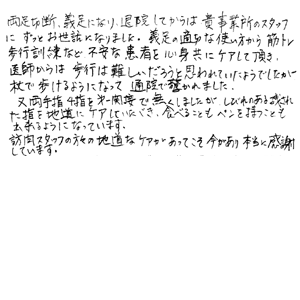 両足切断、義足になり、退院してからは貴事業所のスタッフ
にずっとお世話になりました。義足の適切な使い方から筋トレ
歩行訓練など不安な患者を心身共にケアして頂き、
医師からは歩行は難しいだろうと思われていたようでしたが
杖で歩けるようになって通院で驚かれました。
又両手指4指を第一関節で無くしましたが、しびれのある残され
た指を地道にケアしていただき、食べることもペンを持つことも
出来るようになっています。
訪問スタッフの方々の地道なケアがあってこそ今があり本当に感謝
しています。